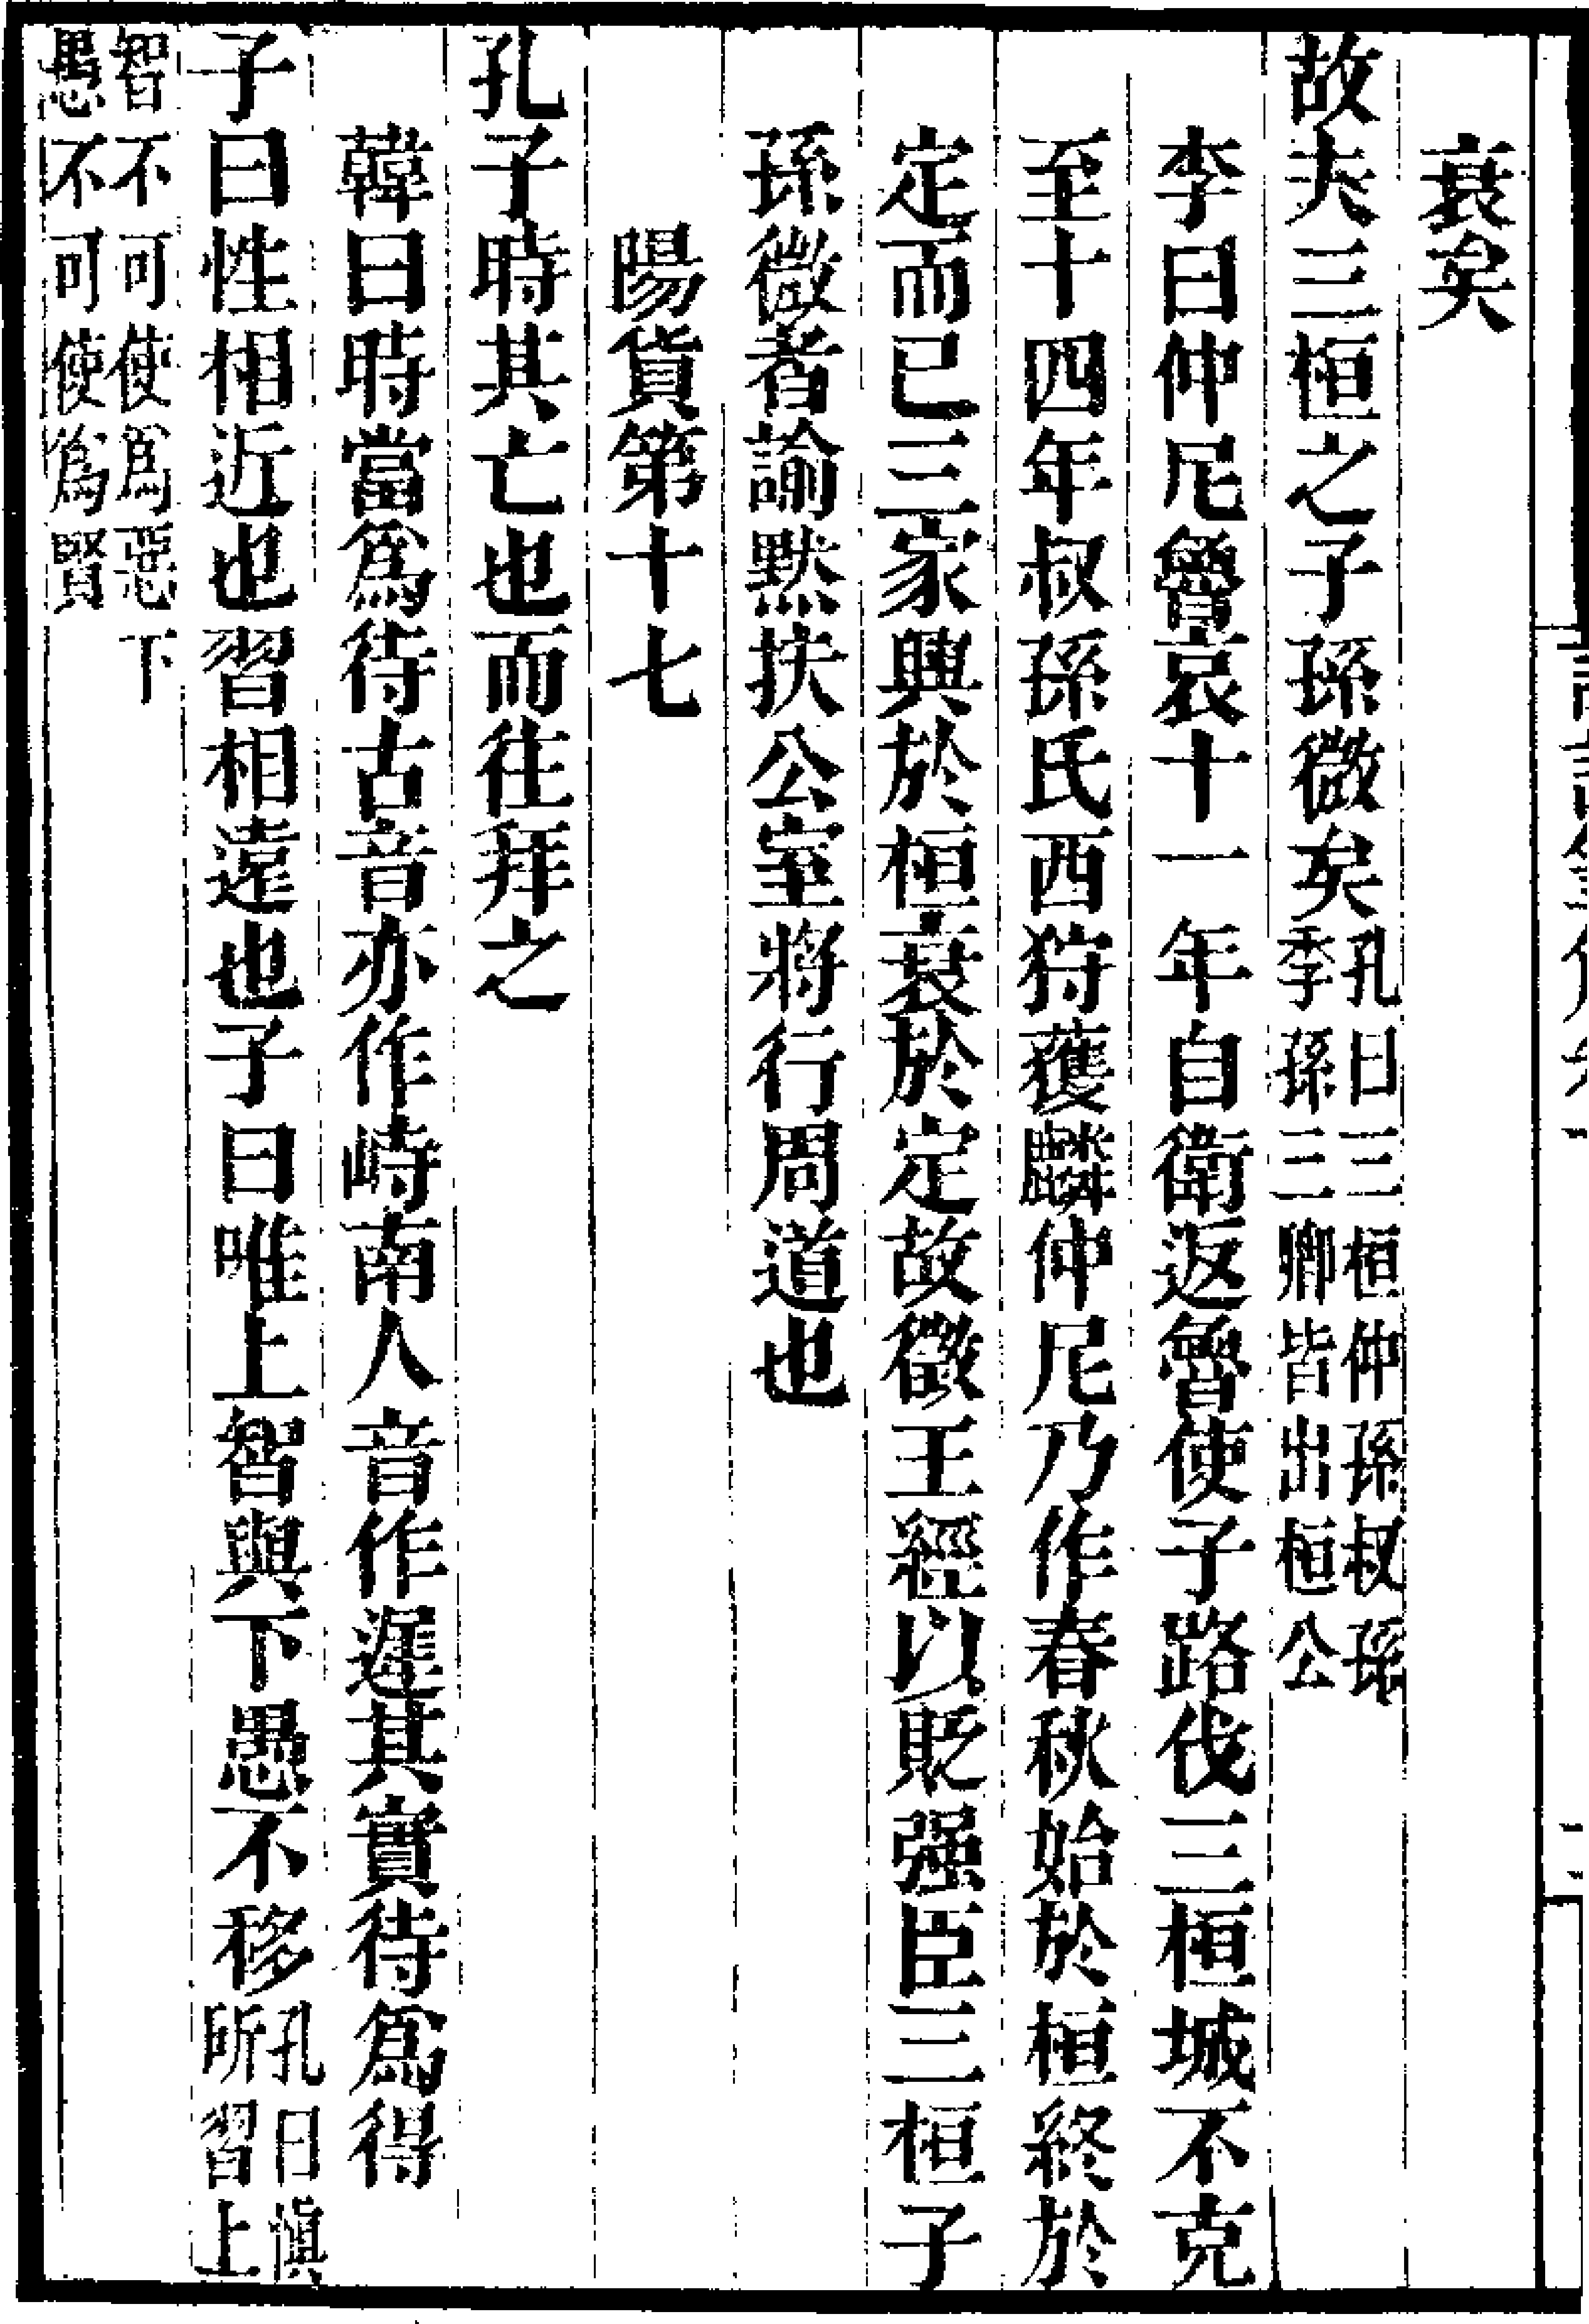 衰矣
故夫三桓之子孫微矣孔曰三桓仲孫叔孫季孫三卿皆出桓公
李曰仲尼魯哀十一年自衛返魯使子路伐三桓城不克
至十四年叔孫氏西狩獲麟仲尼乃作春秋始於桓終於
定而已三家興於桓衰於定故徵王經以貶强臣三桓子
孫微者諭默扶公室將行周道也
陽貨第十七
孔子時其亡也而往拜之
韓曰時當爲待古音亦作峙南人音作遲其實待爲得
子曰性相近也習相遠也子曰唯上智與下愚不移孔曰愼所習上
智不可使爲惡下愚不可使爲賢